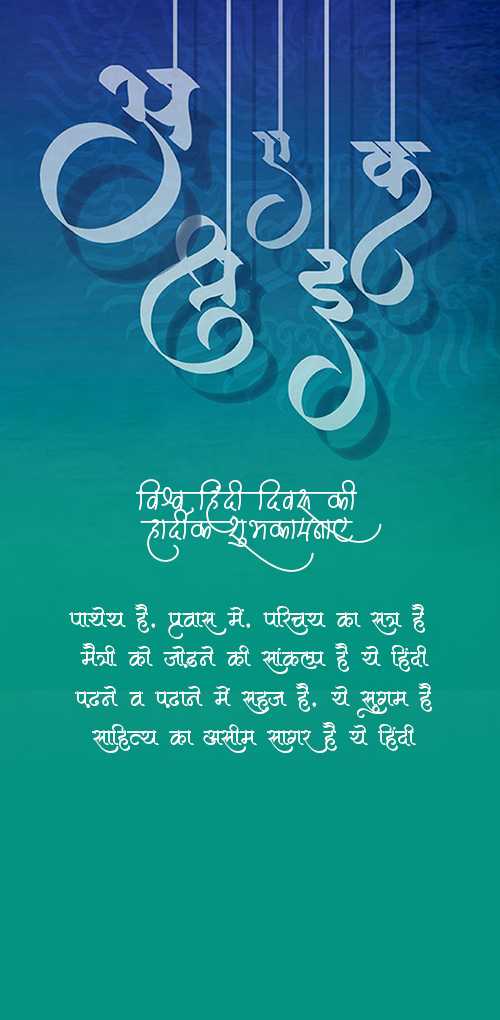 अ ए क
ह्री इ
विश्व हिंदी दिवस की
हार्दीक शुभकामनाएँ
पाथेय है. प्रवास में. परिचय का सत्र है
मैत्री को जोढने की सांकल्प है ये हिंदी
पढने व पढाने में सहज है. ये सुगम है
साहित्य का असीम सागर है ये हिंदी